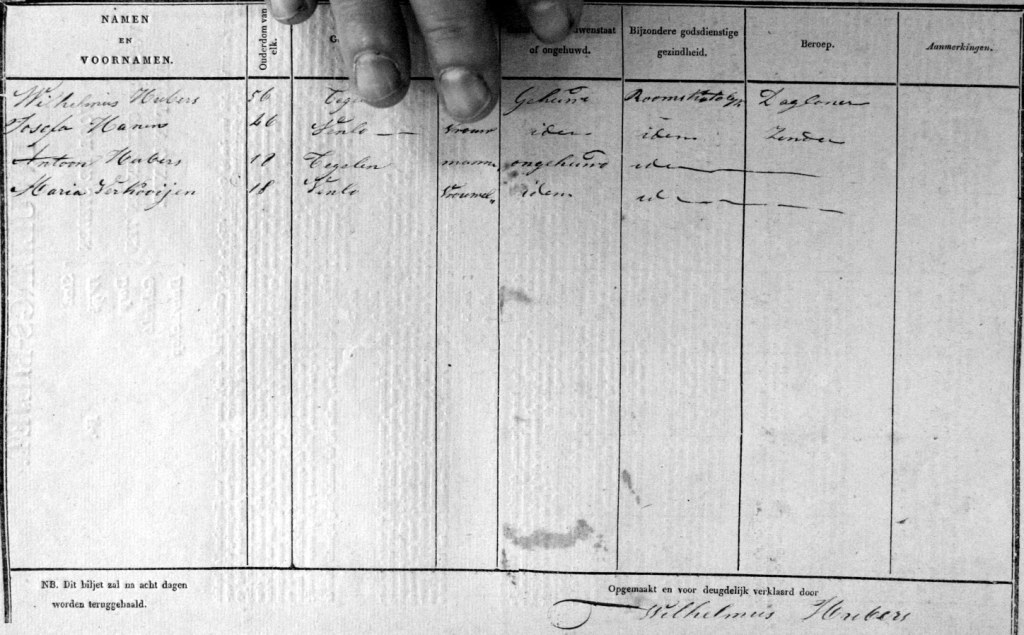 NAMEN
EN
VOORNAMEN.
Ouderdom van elk.
of ongehuwd.
Bijzondere godsdienstige
gezindheid.
Beroep.
Aanmerkingen.
Wilhelmus Hubers 56 Gehuwd Dagloner
Josefa 46 Venlo vrouw idem idem Zonder
Antoon Hubers 19 Tegelen mann. ongehuwd id
Maria 18 Venlo vrouwel. idem id
NB. Dit biljet zal na acht dagen
worden teruggehaald.
Opgemaakt en voor deugdelijk verklaard door
Wilhelmus Hubers